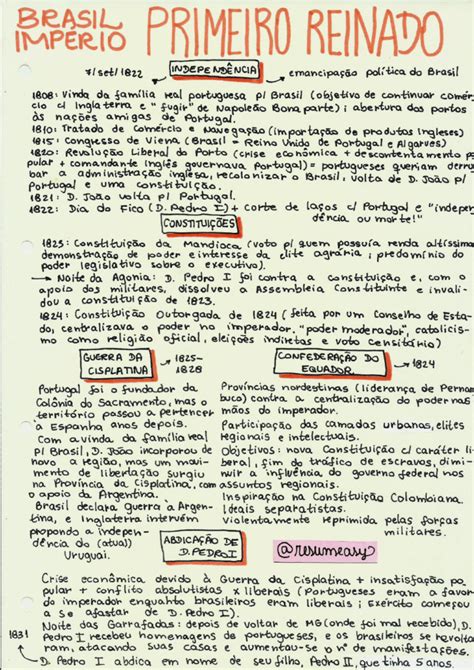 BRASIL IMPÉRIO PRIMEIRO REINADO
7/set/1822 → INDEPENDÊNCIA → emancipação política do Brasil
1808: Vinda da família real portuguesa p/ Brasil (objetivo de continuar comér-
cio c/ Inglaterra e "fugir" de Napoleão Bonaparte); abertura dos portos
às nações amigas de Portugal.
1810: Tratado de Comércio e Navegação (importação de produtos ingleses)
1815: Congresso de Viena (Brasil = Reino Unido de Portugal e Algarves)
1820: Revolução Liberal do Porto (crise econômica + descontentamento po-
pular + comandante inglês governava Portugal) = portugueses queriam derru-
bar a administração inglesa, recolonizar o Brasil, volta de D. João p/
Portugal e uma constituição.
1821: D. João volta p/ Portugal.
1822: Dia do Fico (D. Pedro I) + corte de laços c/ Portugal e "indepen-
dência ou morte!"
CONSTITUIÇÕES
1823: Constituição da Mandioca (voto p/ quem possuía renda altíssima,
demonstração de poder e interesse da elite agrária; predomínio do
poder legislativo sobre o executivo).
→ Noite da Agonia: D. Pedro I foi contra a constituição e, com o
apoio dos militares, dissolveu a Assembleia Constituinte e invali-
dou a constituição de 1823.
1824: Constituição Outorgada de 1824 (feita por um Conselho de Esta-
do, centralizava o poder no imperador, "poder moderador", catolicis-
mo como religião oficial, eleições indiretas e voto censitário)
GUERRA DA CISPLATINA → 1825-1828
Portugal foi o fundador da
Colônia do Sacramento, mas o
território passou a pertencer
à Espanha anos depois.
Com a vinda da família real
p/ Brasil, D. João incorporou de
novo a região, mas um movi-
mento de libertação surgiu
na Província da Cisplatina, com
o apoio da Argentina.
Brasil declara guerra à Argen-
tina, e Inglaterra intervém
propondo a indepen-
dência do (atual)
Uruguai.
CONFEDERAÇÃO DO EQUADOR → 1824
Províncias nordestinas (liderança de Pernam-
buco) contra a centralização do poder nas
mãos do imperador.
Participação das camadas urbanas, elites
regionais e intelectuais.
Objetivos: nova Constituição c/ caráter li-
beral, fim do tráfico de escravos, dimi-
nuir a influência do governo federal nos
assuntos regionais.
Inspiração na Constituição Colombiana.
Ideais separatistas.
Violentamente reprimida pelas forças
militares.
ABDICAÇÃO DE D. PEDRO I
@resumeasy
Crise econômica devido à Guerra da Cisplatina + insatisfação po-
pular + conflito absolutistas x liberais (Portugueses eram a favor
do imperador enquanto brasileiros eram liberais; Exército começou
a se afastar de D. Pedro I).
Noite das Garrafadas: depois de voltar de MG (onde foi mal recebido), D.
Pedro I recebeu homenagens de portugueses, e os brasileiros se revolta-
ram, atacando suas casas e aumentando-se o nº de manifestações.
1831 → D. Pedro I abdica em nome de seu filho, Pedro II, que tinha 5 anos.